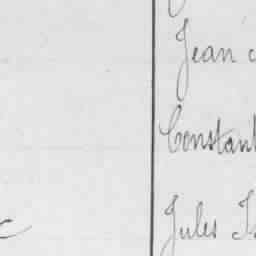 Jean
Constant
Jules